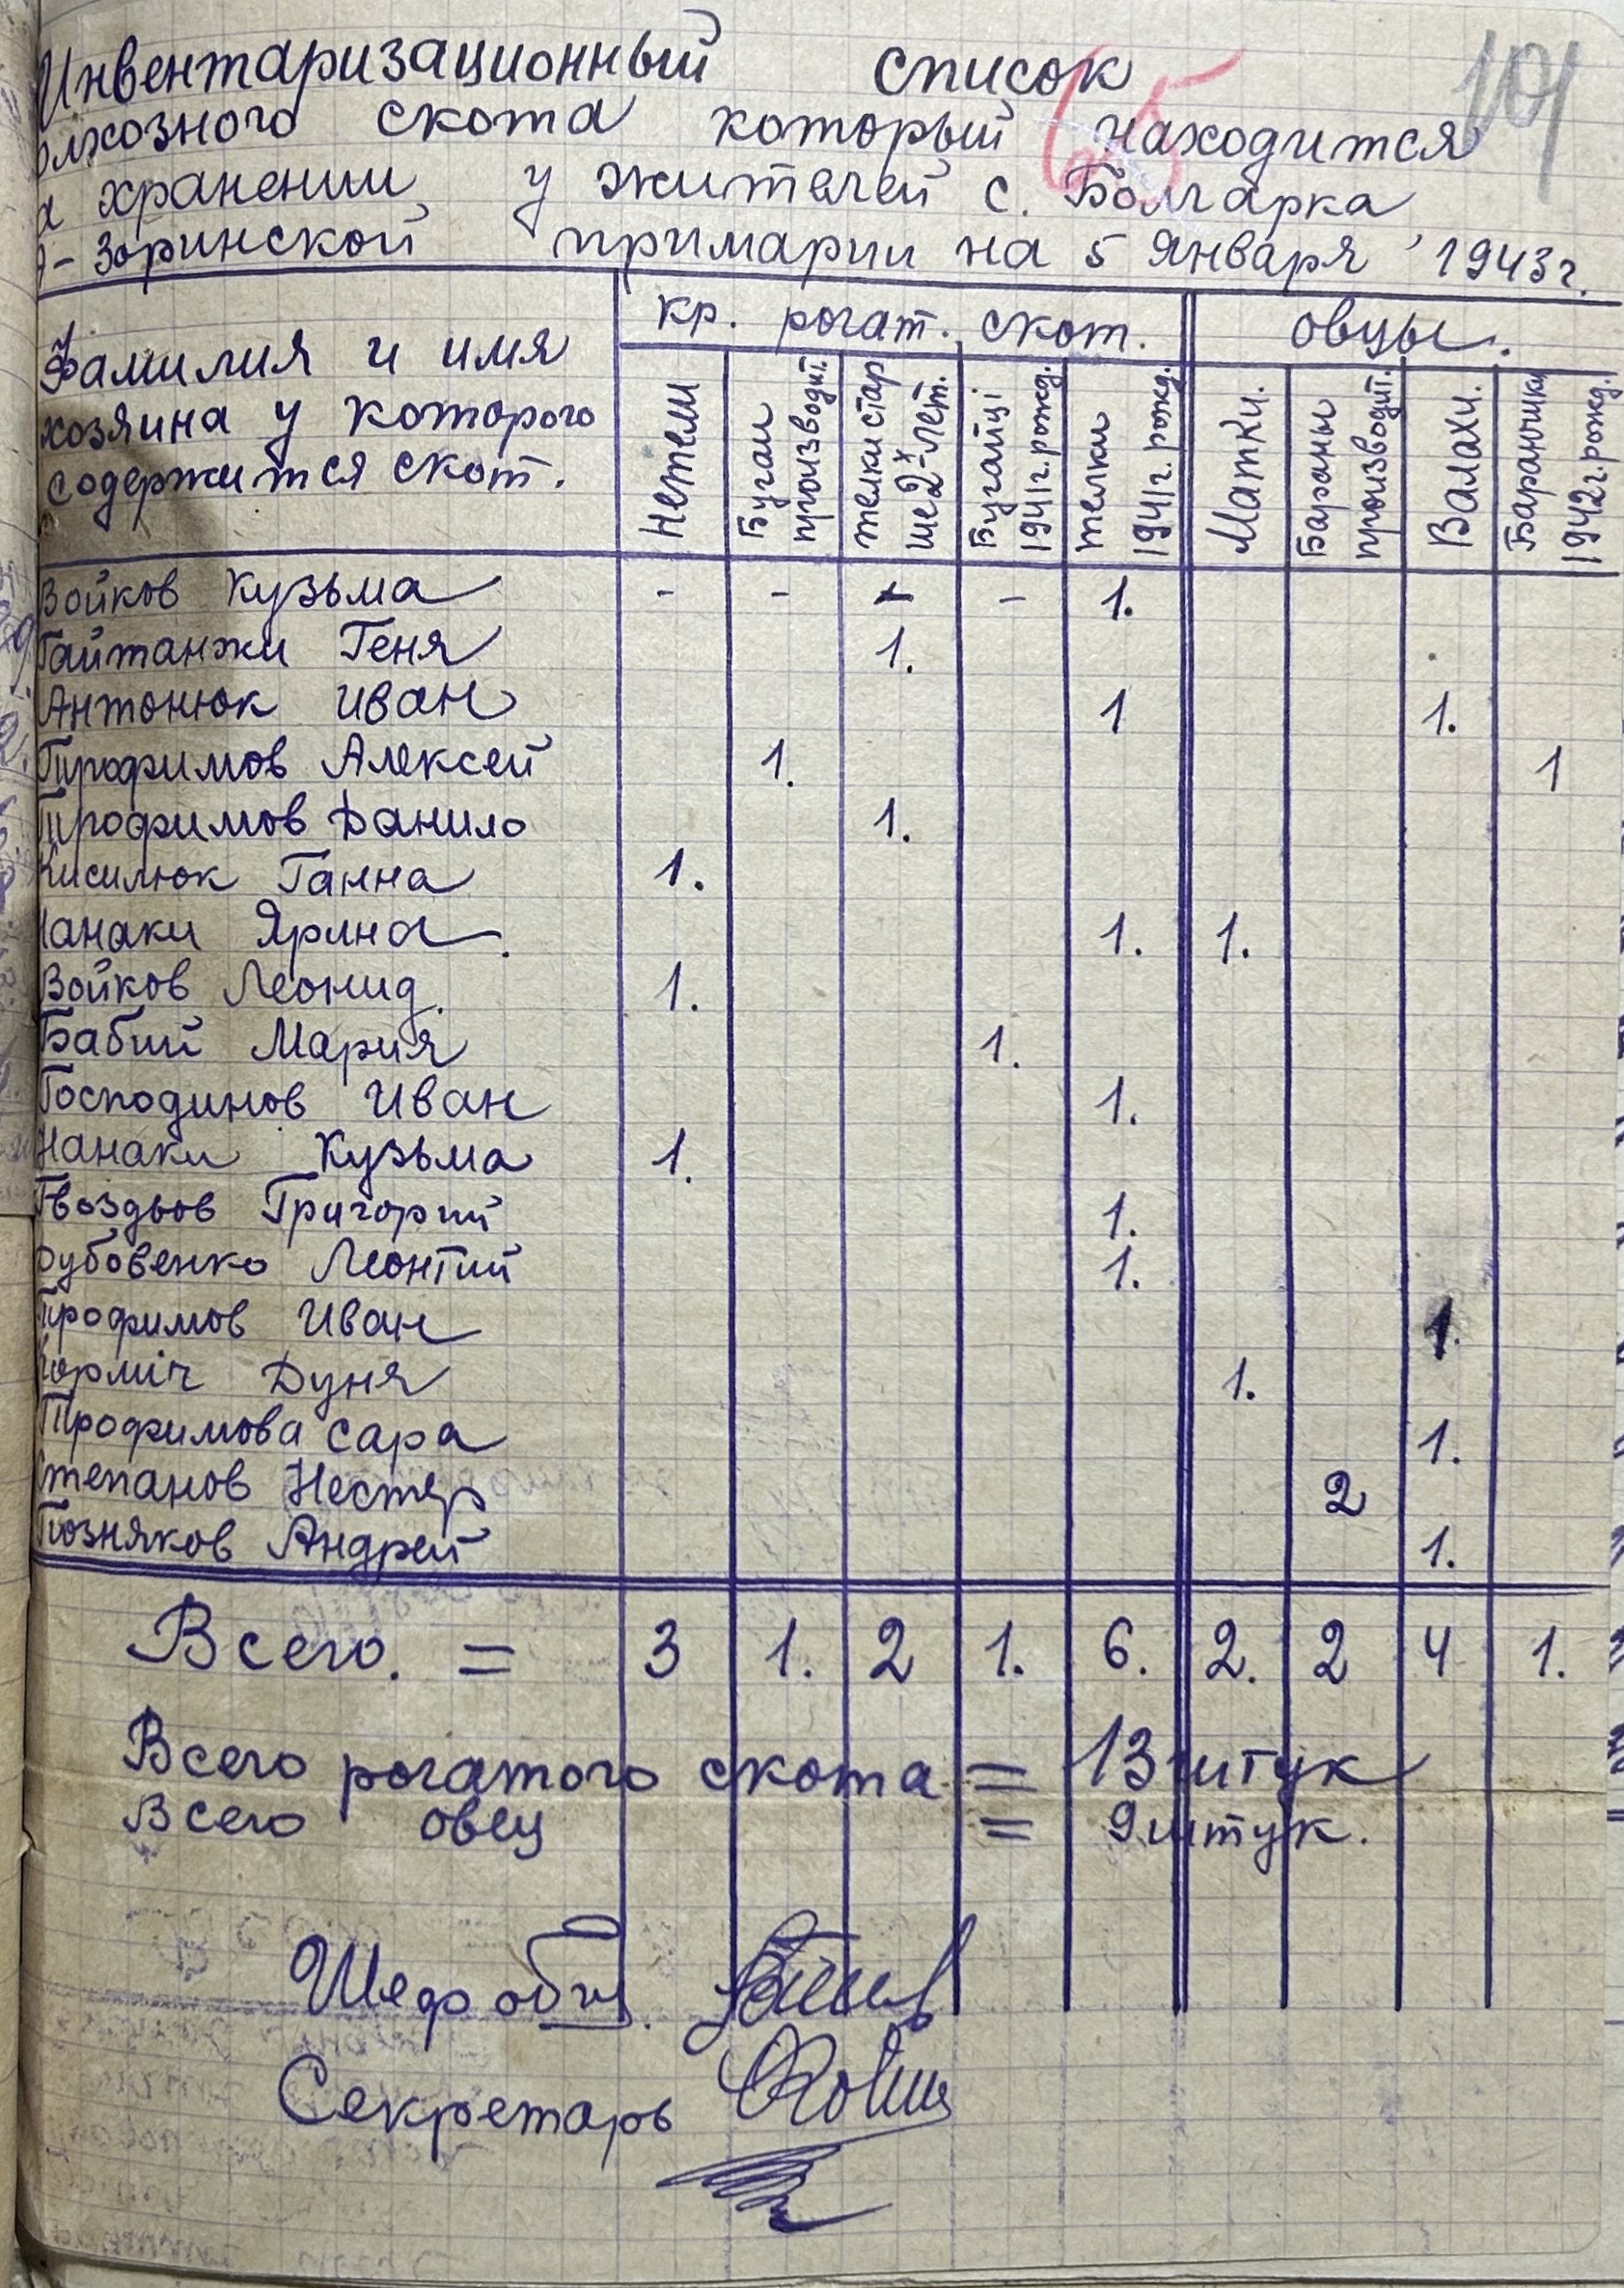 101
65
Инвентаризационный список
олхозного скота который находится
а хранении у жителей с. Болгарка
- Зоринской примарии на 5 января 1943 г.
Фамилия и имя
хозяина у которого
содержится скот.
кр. рогат. скот. овцы.
Нетели
Бугаи производит.
телки старше 2х лет.
Бугайці 1941 г. рожд.
телки 1941 г. рожд.
Матки.
Бараны производит.
Валахи.
Баранчики 1942 г. рожд.
Войков Кузьма - - - - 1.
Гайтанжи Геня 1.
Антонюк Иван 1 1.
Трофимов Алексей 1. 1
Трофимов Данило 1.
Кисилюк Ганна 1.
Канаки Ярина 1. 1.
Войков Леонид. 1.
Бабий Мария 1.
Господинов Иван 1.
Канаки Кузьма 1.
Гвоздьов Григорий 1.
рубовенко Леонтий 1.
Трофимов Иван 1.
Корміч Дуня 1.
Трофимова Сара 1.
Степанов Нестер 2
Позняков Андрей 1.
Всего. = 3 1. 2 1. 6. 2. 2 4 1.
Всего рогатого скота = 13 штук
Всего овец = 9 штук.
Шеф общ.
Секретарь